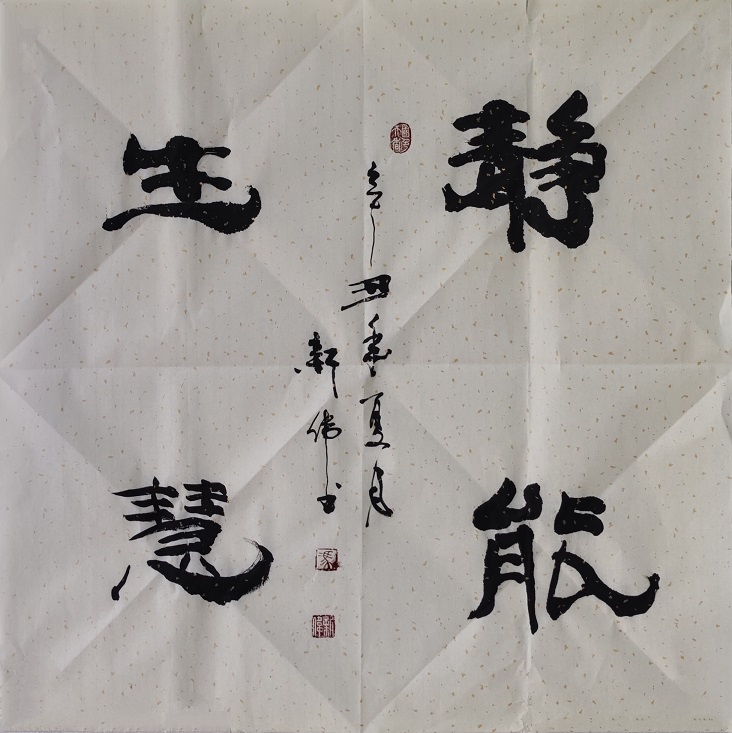 静能
生慧
辛丑年夏月
新伟书